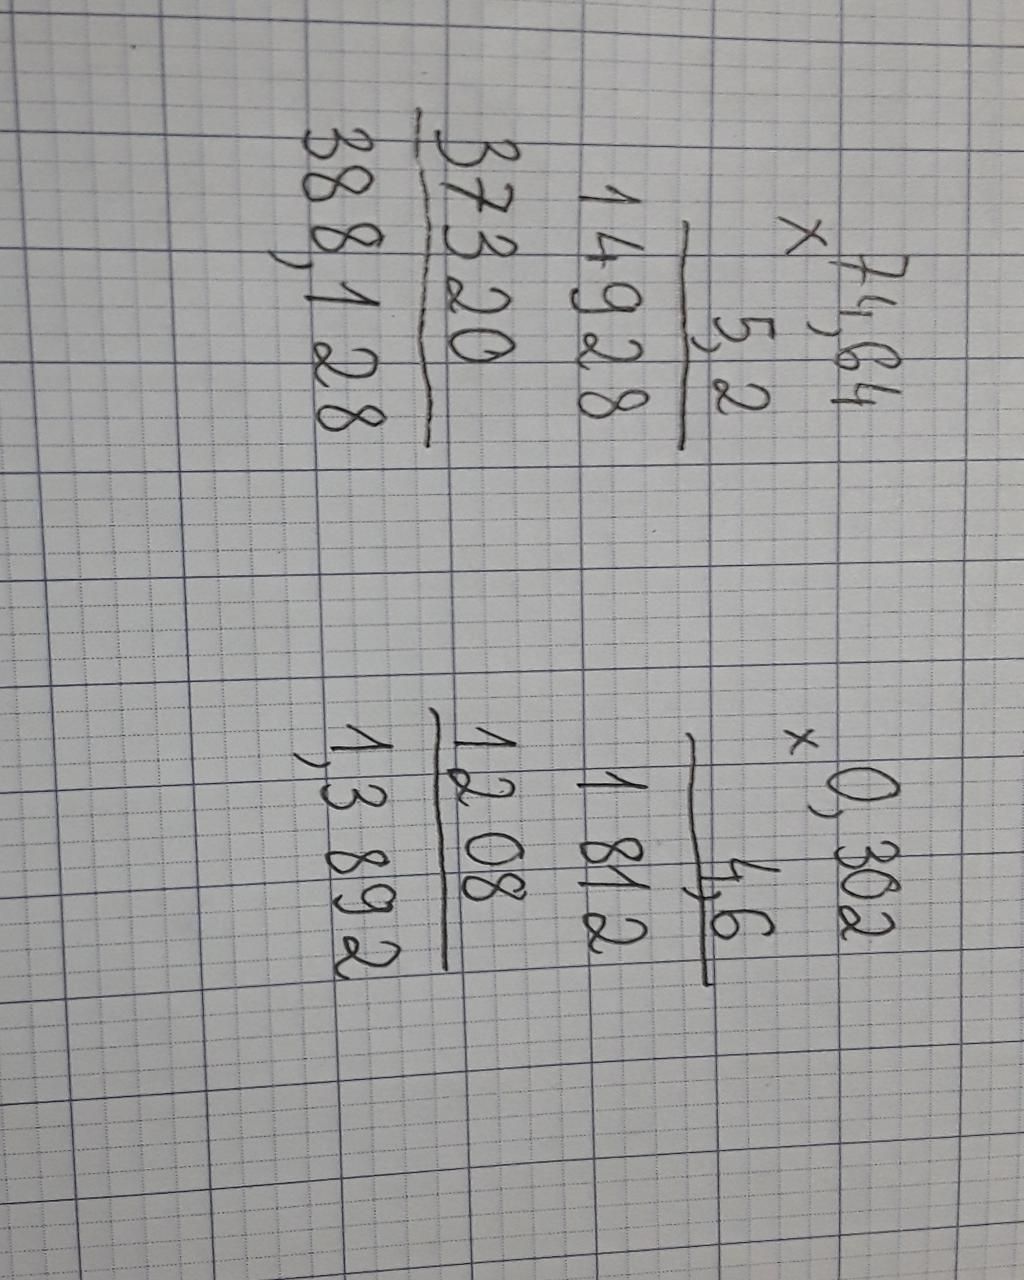 74,64
x
5,2
14928
37320
388,128
0,302
x
4,6
1812
1208
1,3892